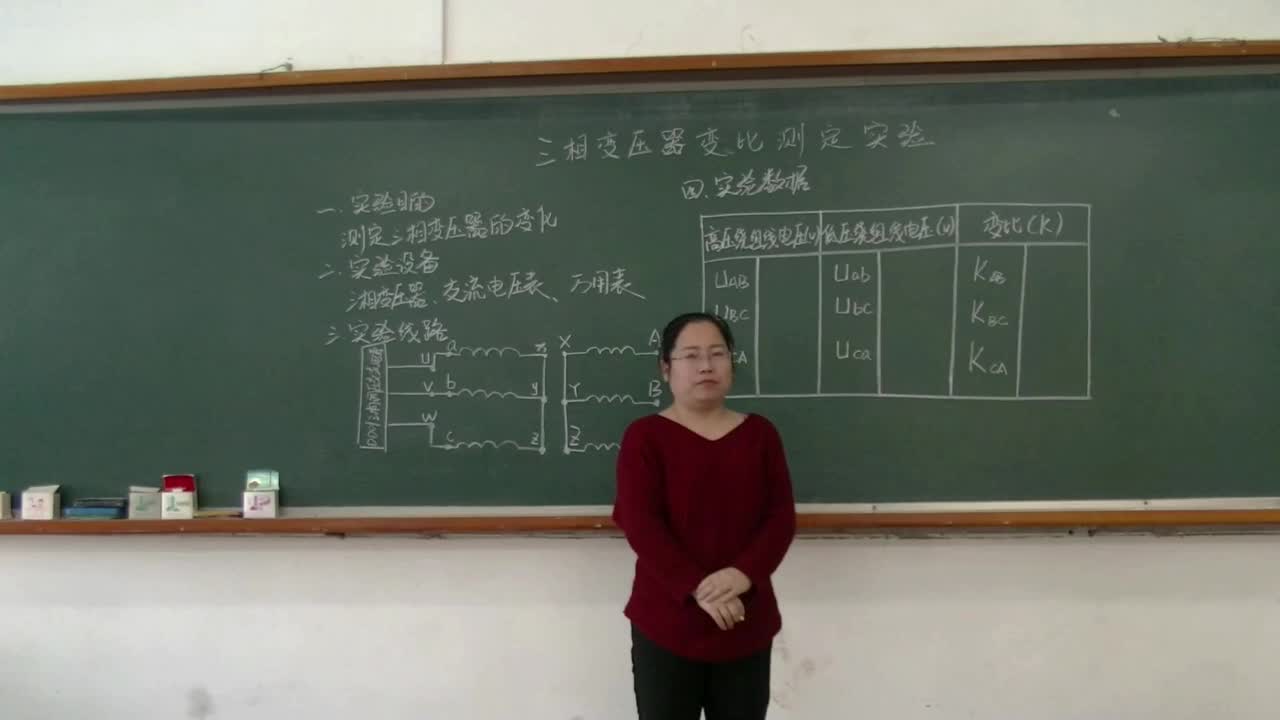 三相变压器变比测定实验
一.实验目的
测定三相变压器的变比
二.实验设备
三相变压器、交流电压表、万用表
三.实验线路
U a x X A
V b y Y B
W c z Z
四.实验数据
高压绕组线电压(V) 低压绕组线电压(V) 变比(K)
UAB Uab KAB
UBC Ubc KBC
CA Uca KCA